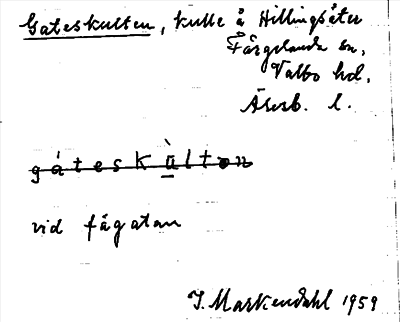 Gateskulten, kulle å Hillingsäter
Färgelanda sn,
Valbo hd,
Älvsb. l.
gáteskùlton
vid fägatan
J. Markendahl 1959